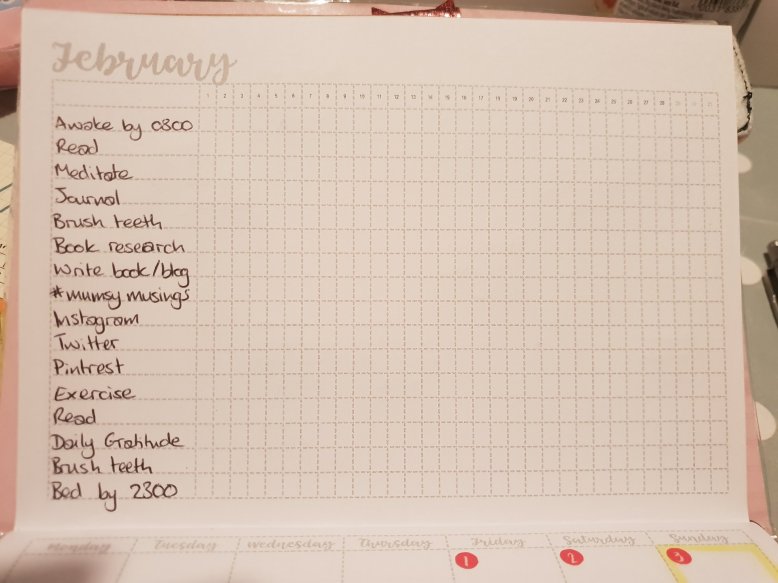 February
1 2 3 4 5 6 7 8 9 10 11 12 13 14 15 16 17 18 19 20 21 22 23 24 25 26 27 28 29 30 31
Awake by 0800
Read
Meditate
Journal
Brush teeth
Book research
Write book/blog
#mumsy musings
Instagram
Twitter
Pintrest
Exercise
Read
Daily Gratitude
Brush teeth
Bed by 2300
Monday Tuesday Wednesday Thursday Friday Saturday Sunday
1 2 3